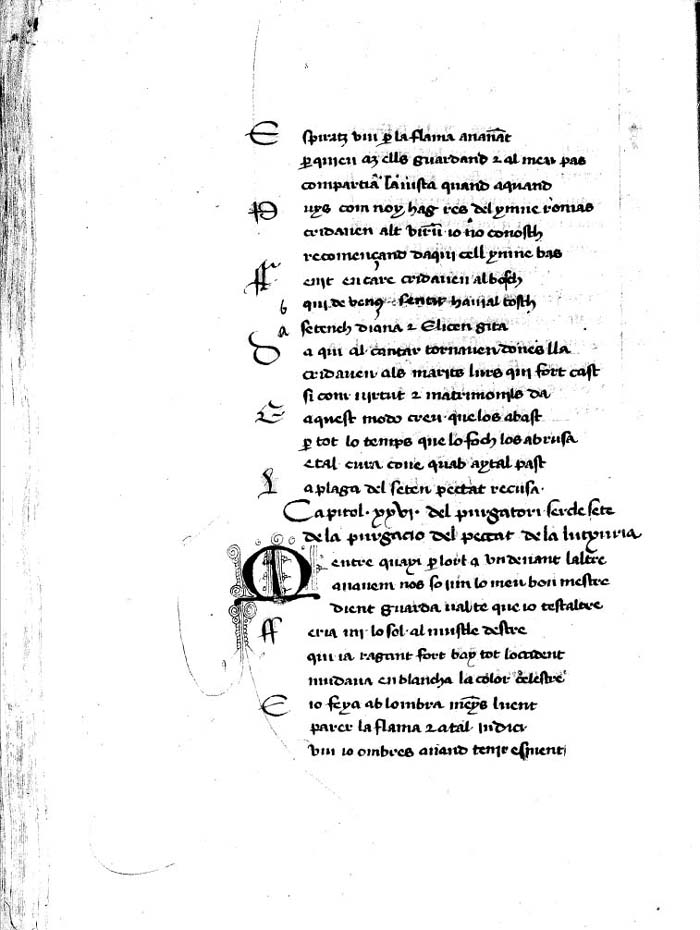 E spiritz viu p la flama anānāt
p quieu az ells guardand ⁊ al meu pas
compartiā la vista quand aquand
P uys com noy hag res del ymne romas
cridaven alt virū io nō conosch
recomençand daqui cell ymne bas
F enit encare cridaven al bosch
b qui de venꝰ sentir havia l tosch
a se tench diana ⁊ Elicen gita
D a qui al cantar tornaven dones lla
cridaven als marits lurs qui fort cast
si com virtut ⁊ matrimonis da
E aquest modo creu que los abast
p tot lo temps que lo foch los abrusa
e tal cura cove quab aytal past
L a plaga del seten peccat recusa
Capitol xxvi del purgatori ser de sete
de la purgacio del peccat de la luxuria
M entre quaxi p lorl a vn denant laltre
anavem nos sovin lo meu bon mestre
dient guarda valte que io tescaltre
F eria mi lo sol al muscle destre
qui ia ragant fort bay tot loccident
mudava en blancha la color celestre
E io feya ab lombra meys luent
parer la flama ⁊ a tal indici
viu io ombres anand tenir esment